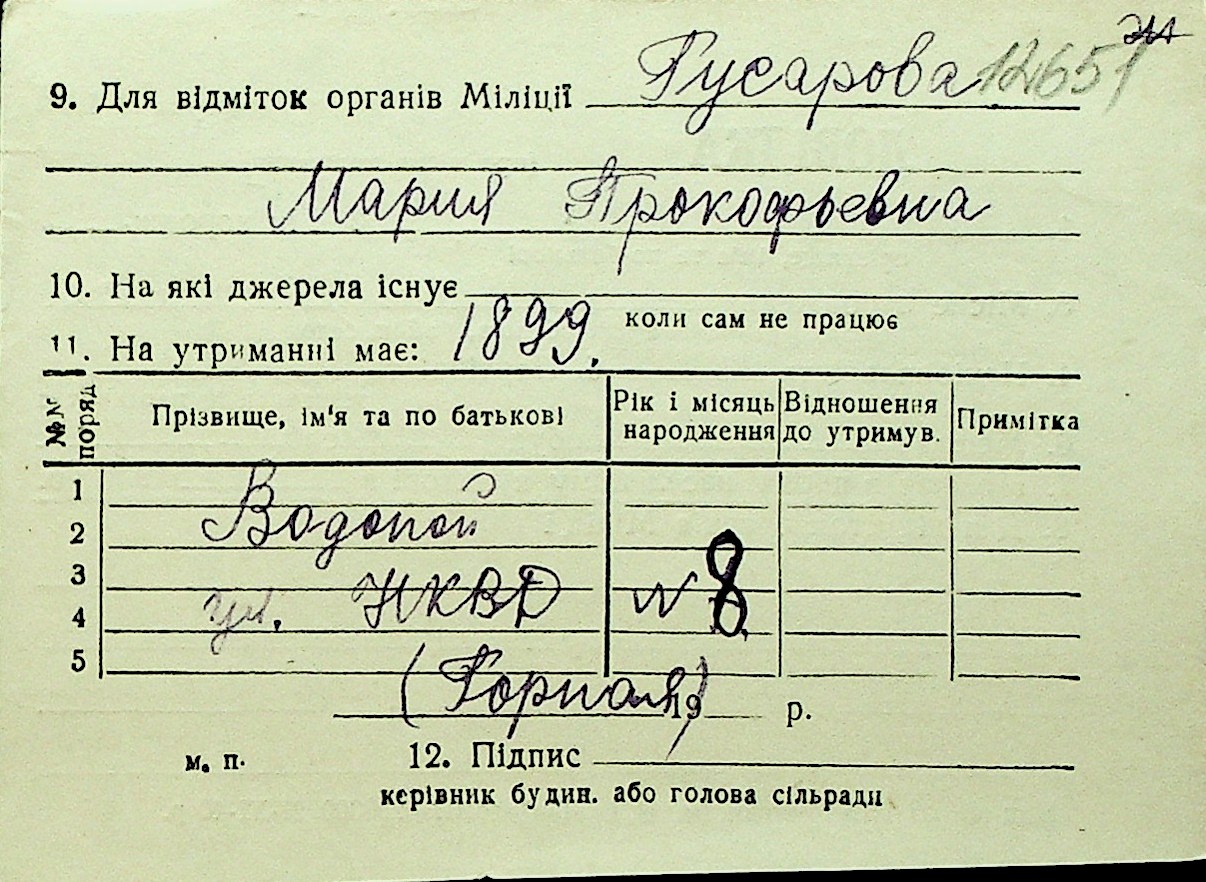 9. Для відміток органів Міліції Гусарова 12651
Мария Прокофьевна
10. На які джерела існує
коли сам не працює
11. На утриманні має: 1899.
№№ поряд Прізвище, ім'я та по батькові Рік і місяць народження Відношення до утримув. Примітка
1
2 Водопой
3
4 ул. НКВД № 8
5
(Горная) 19 р.
м. п. 12. Підпис
керівник будин. або голова сільради